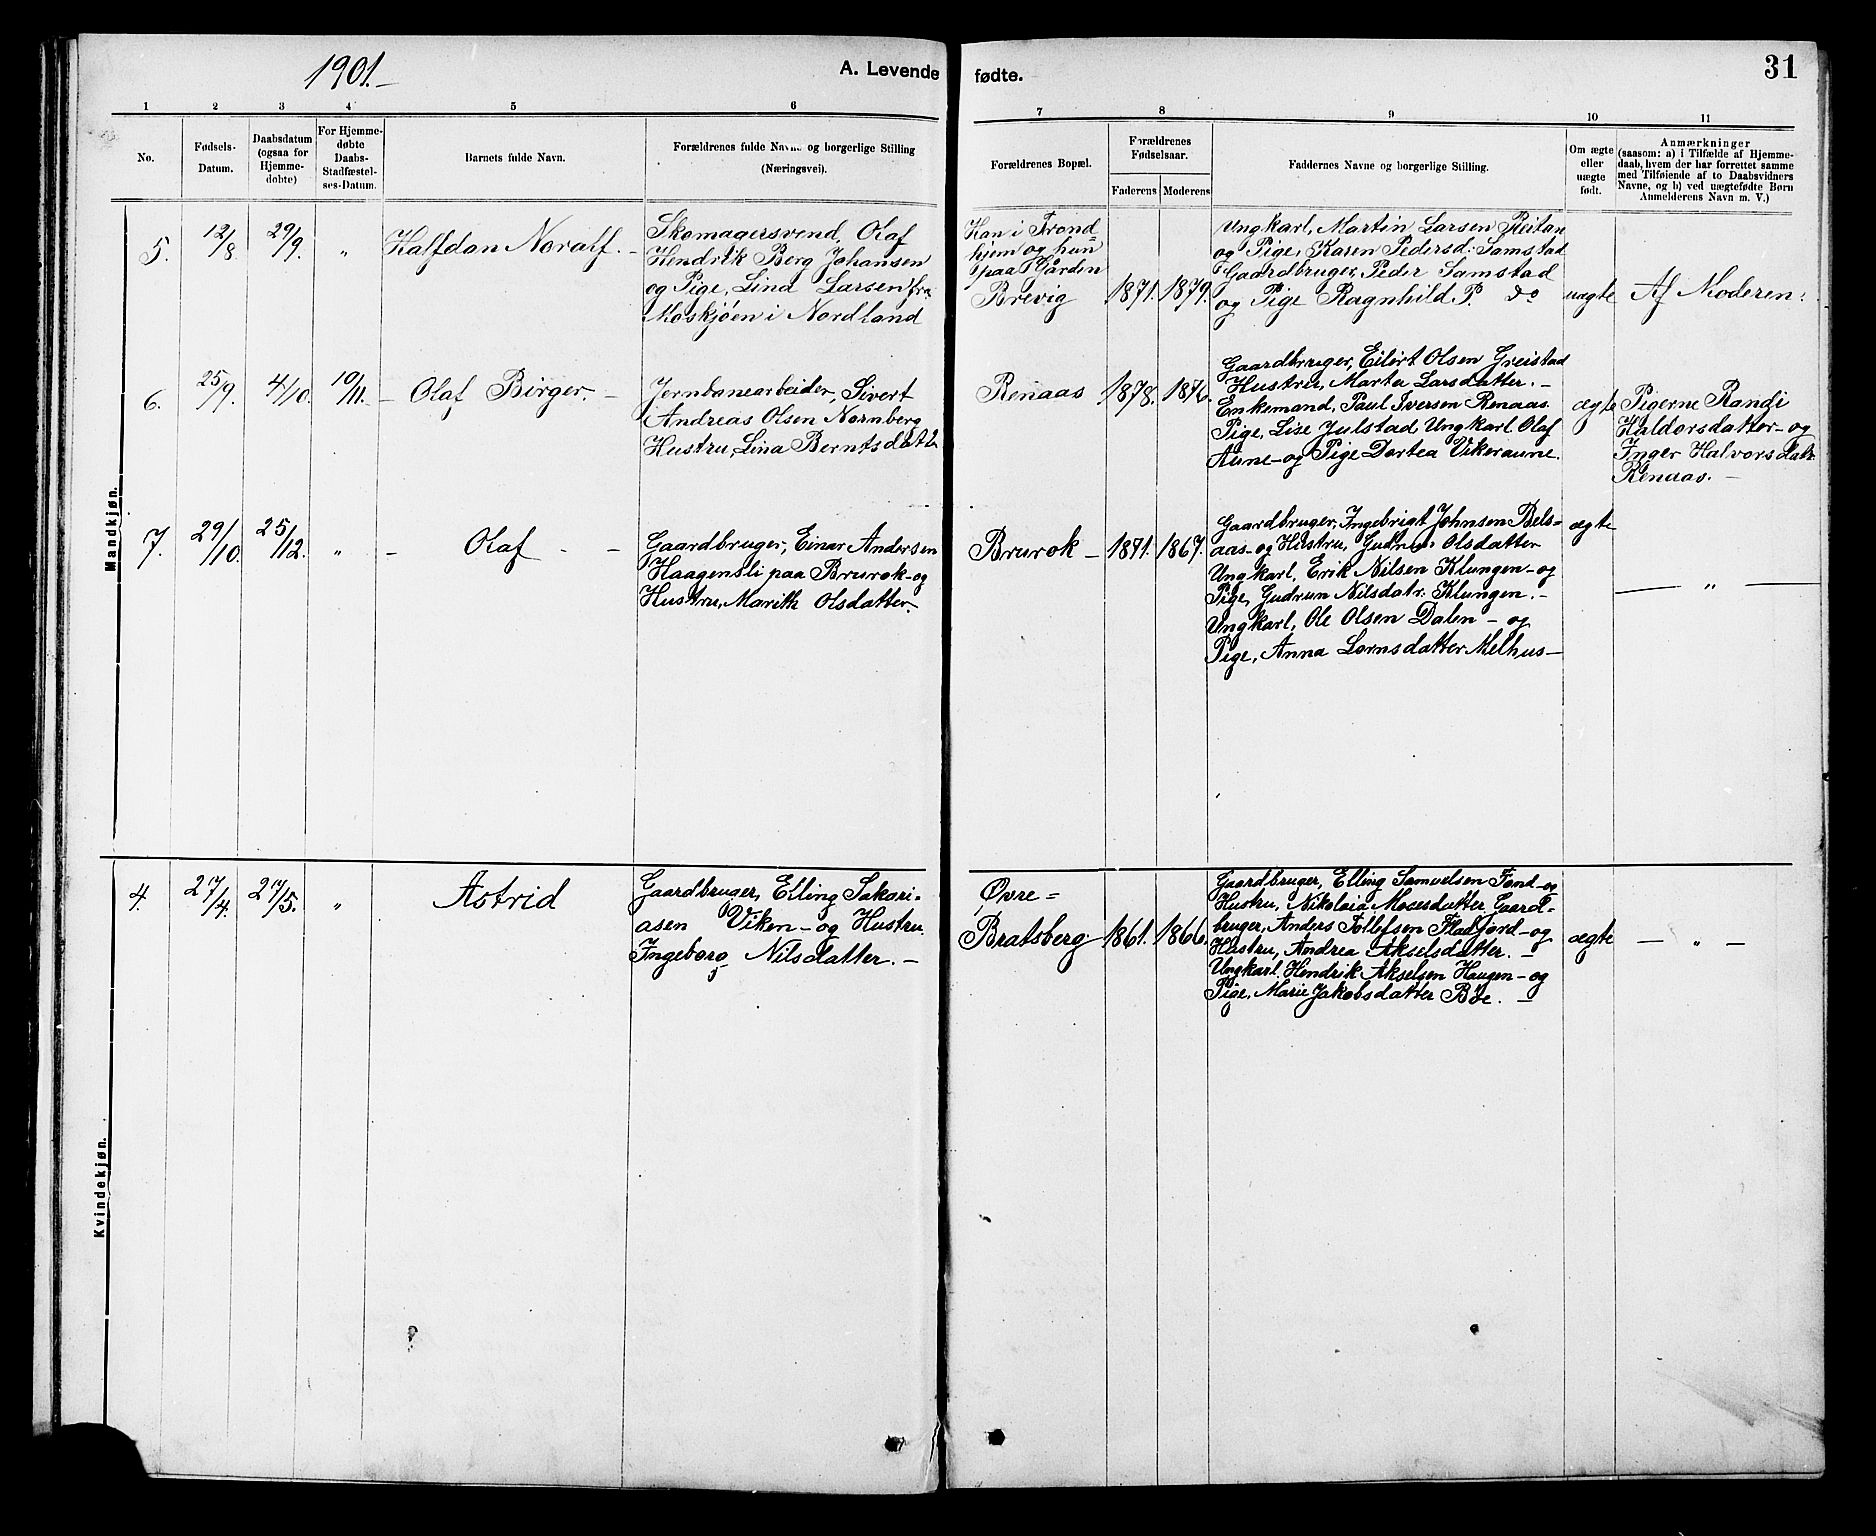 1901.-
A. Levende
fødte.
31
1
2
3
4
5
6
7
8
9
10
11
No.
Fødsels-
Datum.
Daabsdatum
(ogsaa for
Hjemme-
døbte)
For Hjemme-
døbte
Daabs-
Stadfæstel-
ses-Datum.
Barnets fulde Navn.
Forældrenes fulde Navne og borgerlige Stilling
(Næringsvei).
Forældrenes Bopæl.
Forældrenes
Fødselsaar.
Faderens
Moderens
Faddernes Navne og borgerlige Stilling.
Om ægte
eller
uægte
født.
Anmærkninger
(saasom: a) i Tilfælde af Hjemme-
daab, hvem der har forrettet samme
med Tilføiende af to Daabsvidners
Navne, og b) ved uægtefødte Børn
Anmelderens Navn m. V.)
Mandkjøn.
5.
12/8.
29/9.
"
Halfdan Noralf. -
Skomagersvend, Olaf
Hendrik Berg Johansen
og Pige, Lina Larsen, fra
Moskjøen i Nordland
Han i Trond=
hjem og hun
paa Gården
Brevig
1871.
1879.
Ungkarl, Martin Larsen Reitan
og Pige, Karen Pedersd: Samstad
Gaardbruger, Peder Samstad
og Pige Ragnhild P. do
uægte
Af Moderen:
6.
25/9.
4/10.
10/11.
- Olaf Birger. -
Jernbanearbeider, Sivert
Andreas Olsen Nornberg
Hustru, Lina Berntsdatter
Renaas
1878.
1876.
Gaardbruger, Eilert Olsen Greistad
Hustru, Marta Larsdatter. -
Enkemand, Paul Iversen Renaas.
Pige, Lise Julstad Ungkarl Olaf
Aune - og Pige Dortea Vikeraune.
ægte
Pigerne Randi
Haldorsdatter - og
Inger Halvorsdatr.
Renaas. -
7.
29/10.
25/12.
"
- Olaf - -
Gaardbruger, Einar Andersen
Haagensli paa Brurok - og
Hustru, Marith Olsdatter.
Brurok -
1871.
1867.
Gaardbruger, Ingebrigt Johnsen Bels=
aas - og Hustru, Gudrun Olsdatter
Ungkarl, Erik Nilsen Klungen - og
Pige, Gudrun Nilsdatr: Klungen. -
Ungkarl, Ole Olsen Dalen - og
Pige, Anna Lornsdatter Melhus -
ægte
- " -
Kvindekjøn.
4.
27/4.
27/5.
"
Astrid
Gaardbruger, Elling Sakari=
asen Viken - og Hustru.
Ingeborg Nilsdatter. -
Øvre =
Bratsberg.
1861.
1866.
Gaardbruger, Elling Samuelsen Tand - og
Hustru, Nikolaia Moesdatter Gaard=
bruger, Anders Tollefsen Fladfjord - og
Hustru, Andrea Akselsdatter. -
Ungkarl, Hendrik Akselsen Haugen - og
Pige, Marie Jakobsdatter Bøe. -
ægte
- " -